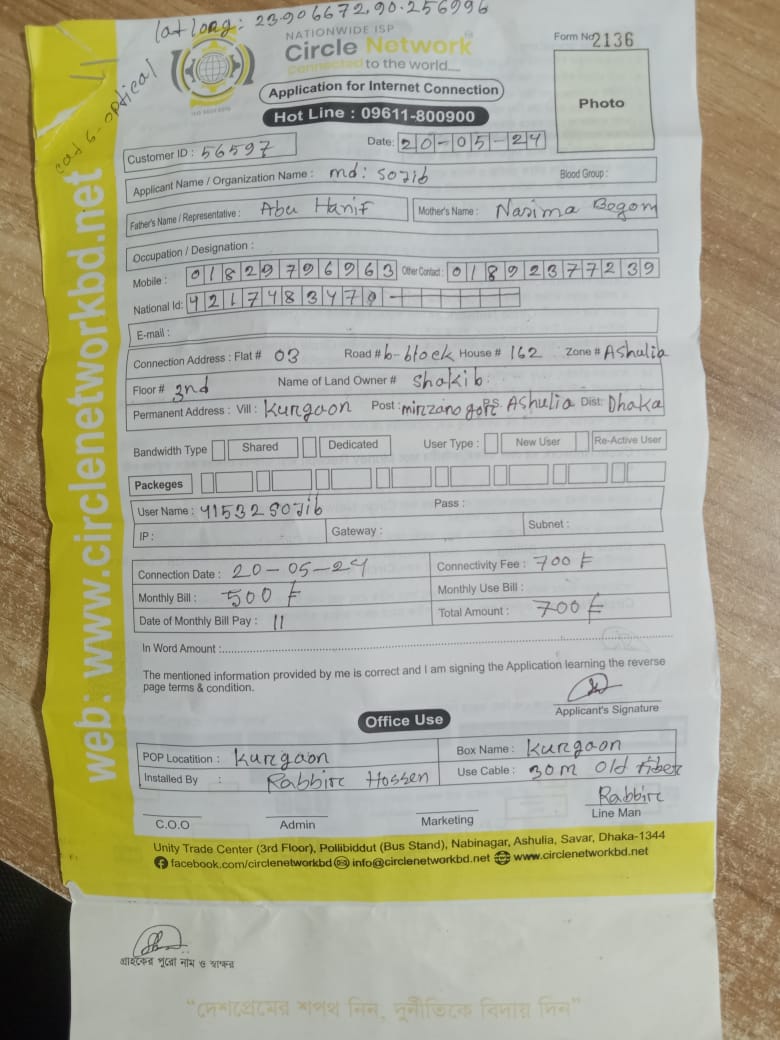 lat long: 23.906672,90.256996
cat 6 - optical
NATIONWIDE ISP
Circle Network
Connected to the world...
Form No 2136
Application for Internet Connection
Hot Line : 09611-800900
Photo
Customer ID : 56597 Date: 20-05-24
Applicant Name / Organization Name : md: sojib Blood Group :
Father's Name / Representative : Abu Hanif Mother's Name : Nasima Begom
Occupation / Designation :
Mobile : 01829796963 Other Contact : 01892377239
National Id: 4217483470-
E-mail :
Connection Address : Flat # 03 Road # b-block House # 162 Zone # Ashulia
Floor # 3nd Name of Land Owner # Shakib
Permanent Address : Vill : Kurgaon Post : P.S. Ashulia Dist: Dhaka
Bandwidth Type Shared Dedicated User Type : New User Re-Active User
Packeges
User Name : 41532 Sojib Pass :
IP : Gateway : Subnet :
Connection Date : 20-05-24 Connectivity Fee : 700 ৳
Monthly Bill : 500 ৳ Monthly Use Bill :
Date of Monthly Bill Pay : 11 Total Amount : 700 ৳
In Word Amount :
The mentioned information provided by me is correct and I am signing the Application learning the reverse
page terms & condition.
Applicant's Signature
Office Use
POP Locatition : Kurgaon Box Name : Kurgaon
Installed By : Rabbir Hossen Use Cable : 30m Old fiber
Rabbir
C.O.O Admin Marketing Line Man
Unity Trade Center (3rd Floor), Pollibiddut (Bus Stand), Nabinagar, Ashulia, Savar, Dhaka-1344
facebook.com/circlenetworkbd info@circlenetworkbd.net www.circlenetworkbd.net
web: www.circlenetworkbd.net
গ্রাহকের পুরো নাম ও স্বাক্ষর
"দেশপ্রেমের শপথ নিন, দুর্নীতিকে বিদায় দিন"